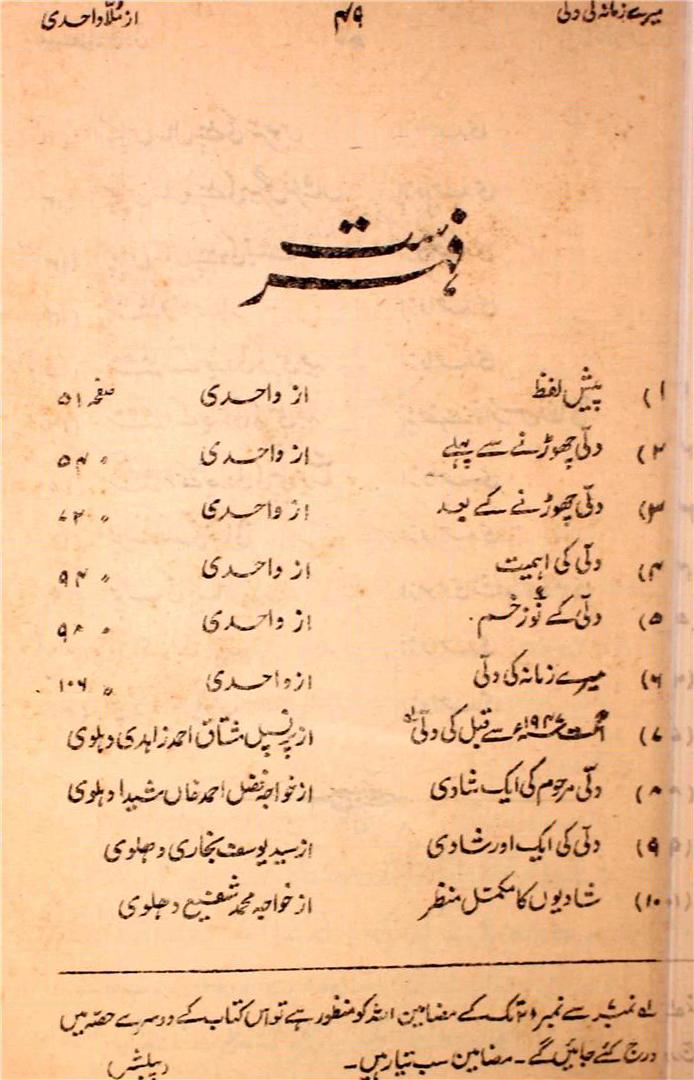 میرے زمانہ کی دلی ۴۹ از ملّا واحدی
فہرست
۱) پیش لفظ از واحدی صفحہ ۵۱
۲) دلّی چھوڑنے سے پہلے از واحدی 〃 ۵۴
۳) دلّی چھوڑنے کے بعد از واحدی 〃 ۷۳
۴) دلّی کی اہمیت از واحدی 〃 ۹۴
۵) دلّی کے نو زخم. از واحدی 〃 ۹۸
۶) میرے زمانہ کی دلّی از واحدی 〃 ۱۰۶
۷) اگست ۱۹۴۷ء سے قبل کی دلّی از پرنسپل مشتاق احمد زاہدی دہلوی
۸) دلّی مرحوم کی ایک شادی از خواجہ فضل احمد خاں شیدا دہلوی
۹) دلّی کی ایک اور شادی از سید یوسف بخاری دھلوی
۱۰) شادیوں کا مکمّل منظر از خواجہ محمد شفیع دھلوی
سے نمبر تک کے مضامین اللہ کو منظور ہے تو اس کتاب کے دوسرے حصّہ میں
درج کئے جائیں گے۔ مضامین سب تیار ہیں۔ (پبلشر)